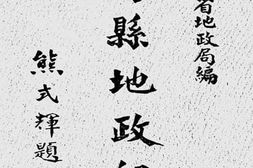 省地政局編
縣地政
熊式輝題